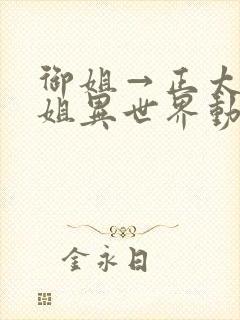 御姐→正太
姐異世界動
金永日